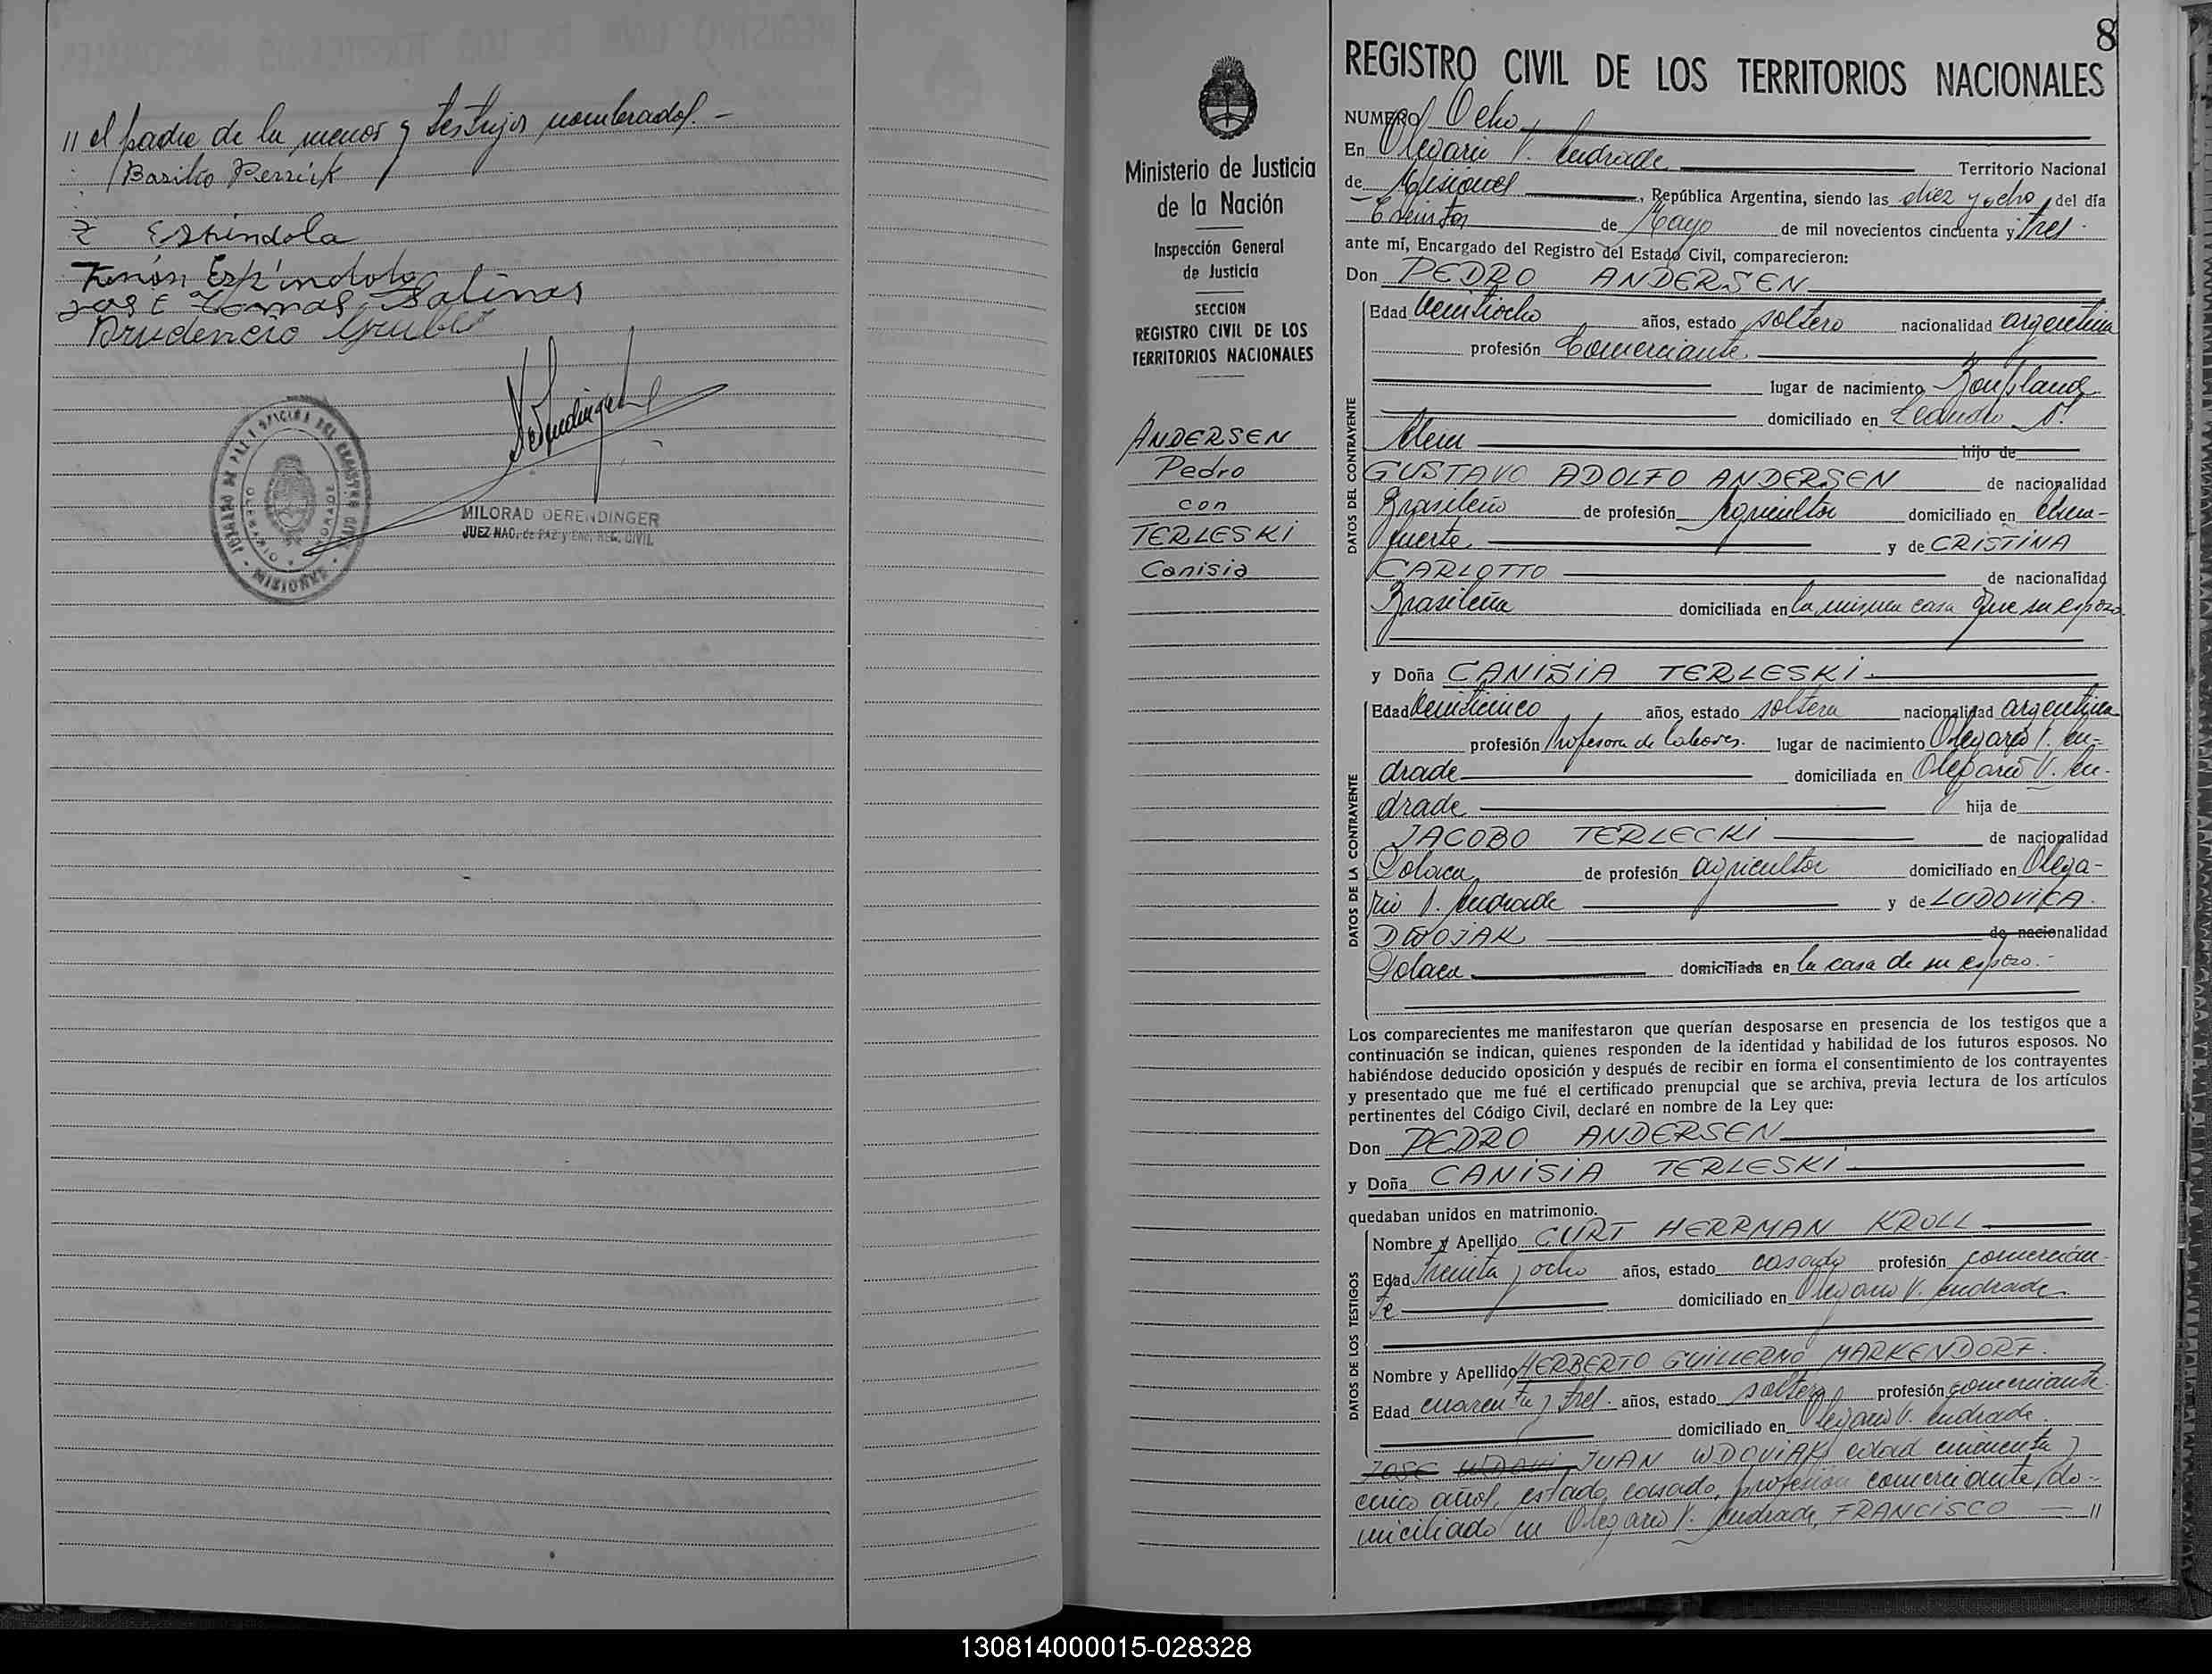 11 el padre de la menor y testigos nombrados. -
Basilio Perzick
Z Espindola
Zenón Espíndola
José Tomas Salinas
Prudencio
JUZGADO DE PAZ Y OFICINA DEL REGISTRO CIVIL
OLEGARIO V. ANDRADE
MISIONES
MILORAD DERENDINGER
JUEZ NAC. de PAZ y ENC. REG. CIVIL
8
Ministerio de Justicia
de la Nación
Inspección General
de Justicia
SECCION
REGISTRO CIVIL DE LOS
TERRITORIOS NACIONALES
ANDERSEN
Pedro
con
TERLESKI
Canisia
REGISTRO CIVIL DE LOS TERRITORIOS NACIONALES
NUMERO Ocho
En Olegario V. Andrade Territorio Nacional
de Misiones, República Argentina, siendo las diez y ocho del día
Treinta de Mayo de mil novecientos cincuenta y tres.
ante mí, Encargado del Registro del Estado Civil, comparecieron:
Don PEDRO ANDERSEN
DATOS DEL CONTRAYENTE
Edad Veintiocho años, estado soltero nacionalidad argentina
profesión Comerciante.
lugar de nacimiento Bonpland
domiciliado en Leandro N.
Alem hijo de
GUSTAVO ADOLFO ANDERSEN de nacionalidad
Brasileño de profesión Agricultor domiciliado en Almafuerte
y de CRISTINA
CARLOTTO de nacionalidad
Brasileña domiciliada en la misma casa que su esposo.
y Doña CANISIA TERLESKI.
DATOS DE LA CONTRAYENTE
Edad Veinticinco años, estado soltera nacionalidad argentina
profesión Profesora de labores. lugar de nacimiento Olegario V. An-
drade domiciliada en Olegario V. An-
drade hija de
JACOBO TERLECKI de nacionalidad
Polaca de profesión agricultor domiciliado en Olega-
rio V. Andrade y de LUDOVIKA
DWOJAK de nacionalidad
Polaca domiciliada en la casa de su esposo.-
Los comparecientes me manifestaron que querían desposarse en presencia de los testigos que a
continuación se indican, quienes responden de la identidad y habilidad de los futuros esposos. No
habiéndose deducido oposición y después de recibir en forma el consentimiento de los contrayentes
y presentado que me fué el certificado prenupcial que se archiva, previa lectura de los artículos
pertinentes del Código Civil, declaré en nombre de la Ley que:
Don PEDRO ANDERSEN
y Doña CANISIA TERLESKI
quedaban unidos en matrimonio.
DATOS DE LOS TESTIGOS
Nombre y Apellido CURT HERRMAN KROLL
Edad treinta y ocho años, estado casado profesión comercian-
te domiciliado en Olegario V. Andrade.
Nombre y Apellido HERBERTO GUILLERMO MARKENDORF.
Edad cuarenta y tres. años, estado soltero profesión comerciante.
domiciliado en Olegario V. Andrade.
JOSE WDOWI JUAN WDOVIAK edad cincuenta y
cinco años, estado casado, profesion comerciante, do-
miciliado en Olegario V. Andrade, FRANCISCO — 11
130814000015-028328